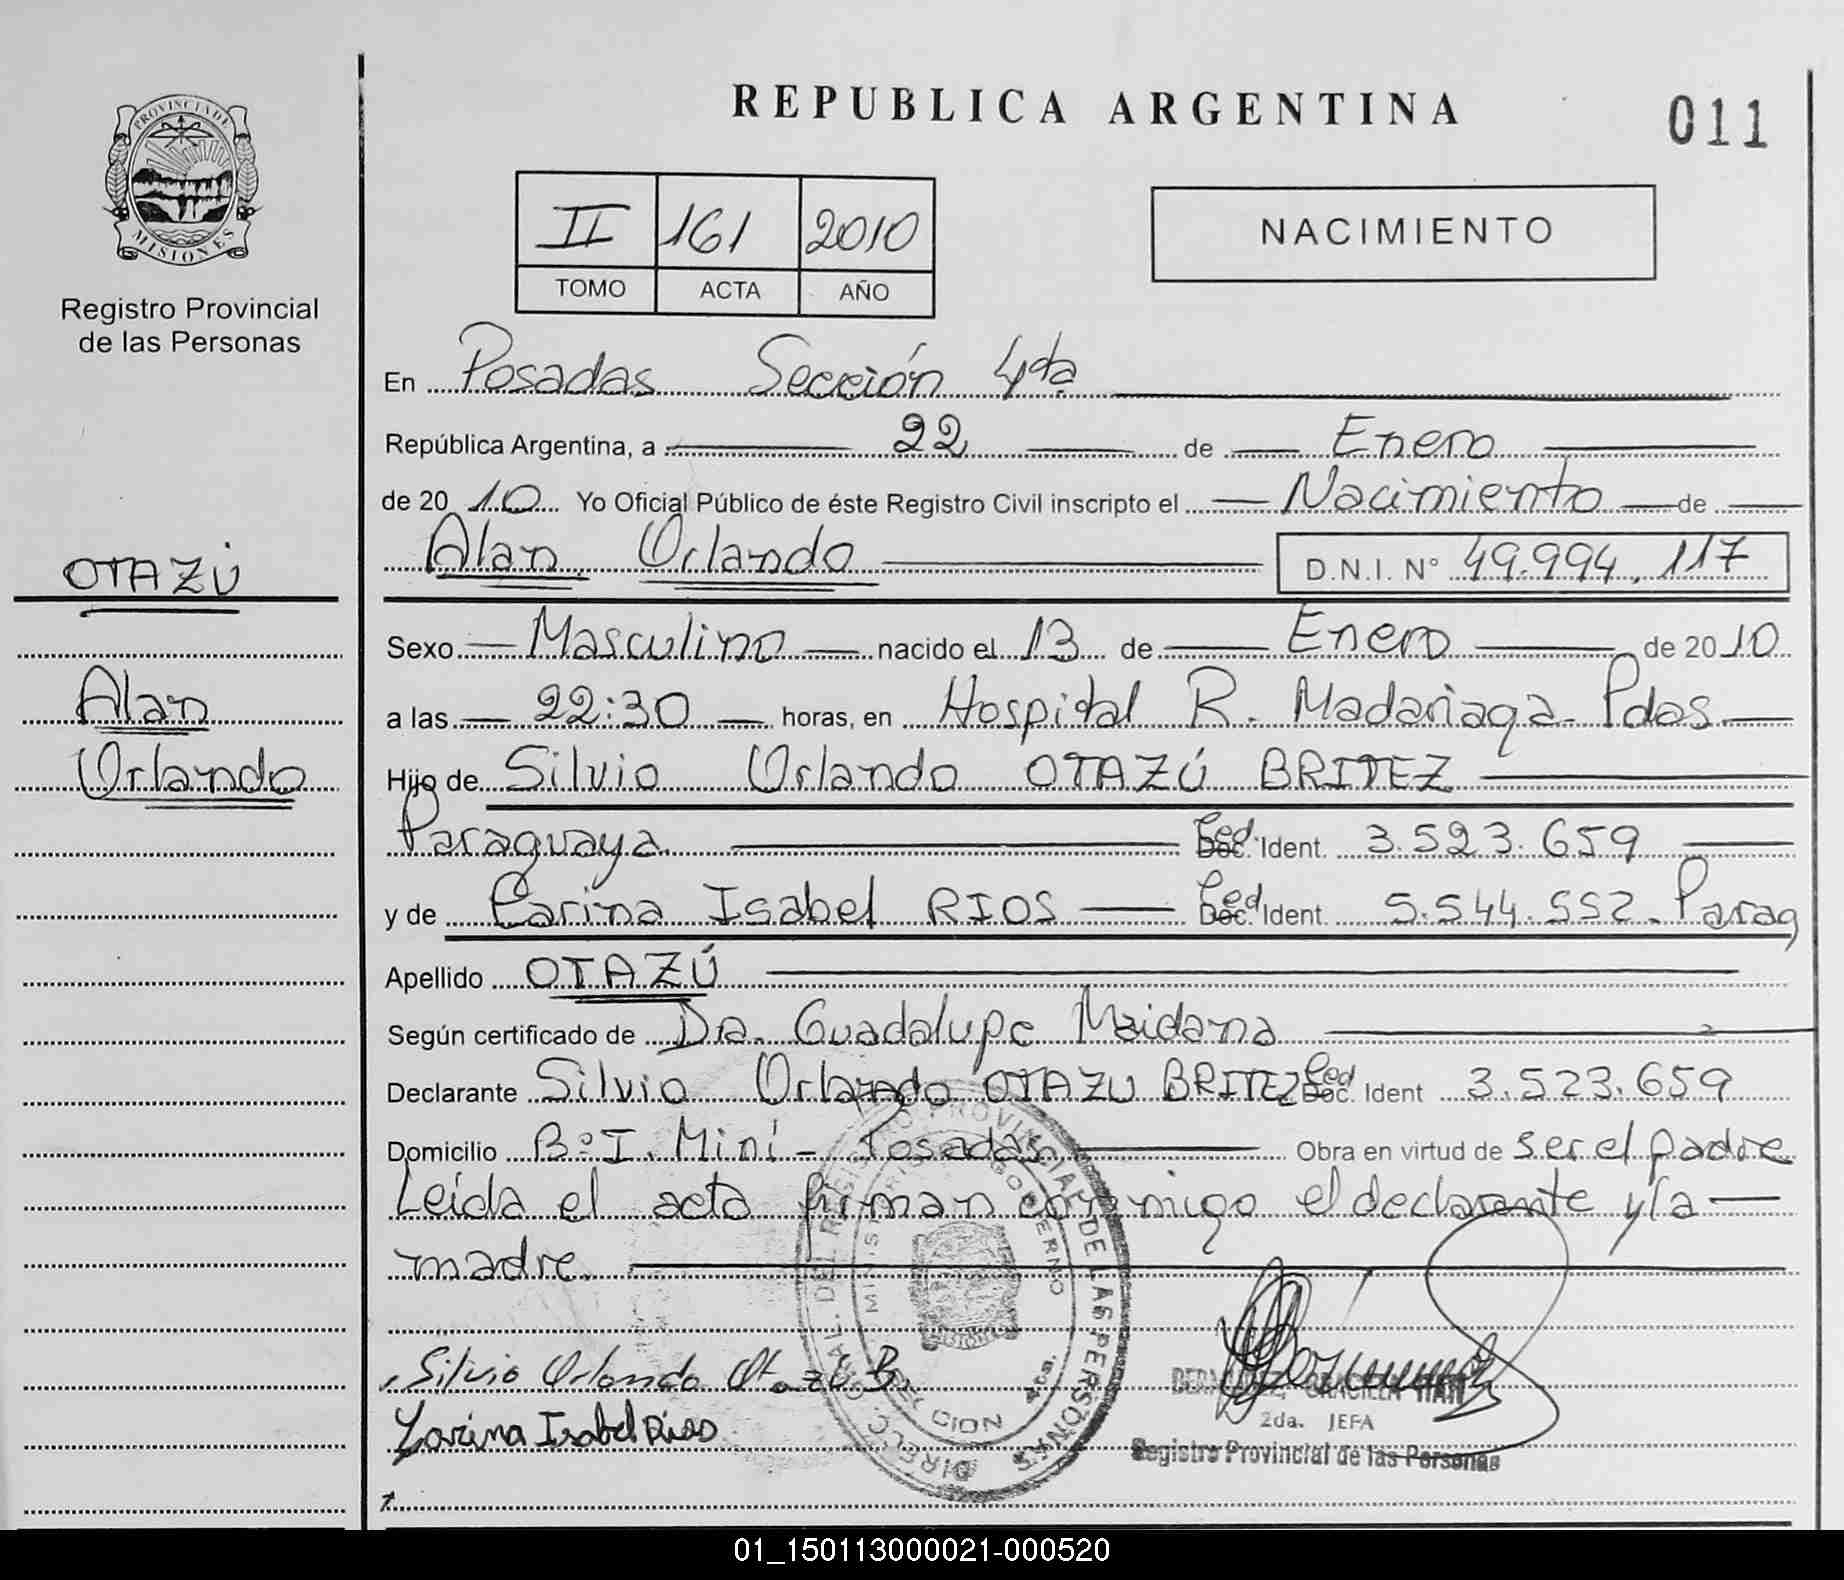 REPUBLICA ARGENTINA
011
PROVINCIA DE
MISIONES
Registro Provincial
de las Personas
II 161 2010
TOMO ACTA AÑO
NACIMIENTO
En Posadas Sección 4ta
República Argentina, a 22 de Enero
de 2010 Yo Oficial Público de éste Registro Civil inscripto el Nacimiento de
Alan Orlando D.N.I. Nº 49.994.117
OTAZÚ
Alan
Orlando
Sexo Masculino nacido el 13 de Enero de 2010
a las 22:30 horas, en Hospital R. Madariaga Pdas
Hijo de Silvio Orlando OTAZÚ BRITEZ
Paraguaya Ced. Doc. Ident. 3.523.659
y de Carina Isabel RIOS Ced Doc. Ident. 5.544.552. Parag
Apellido OTAZÚ
Según certificado de Dra. Guadalupe Maidana
Declarante Silvio Orlando OTAZU BRITEZ Ced Doc. Ident 3.523.659
Domicilio Bº I. Miní - Posadas Obra en virtud de ser el padre
Leída el acta firman conmigo el declarante y la
madre.
Silvio Orlando Otazú B.
Carina Isabel Rios
DIRECC. GRAL. DEL REGISTRO PROVINCIAL DE LAS PERSONAS
MINISTERIO GOBERNO
4ta.
GRACIELA
2da. JEFA
Registro Provincial de las Personas
01_150113000021-000520